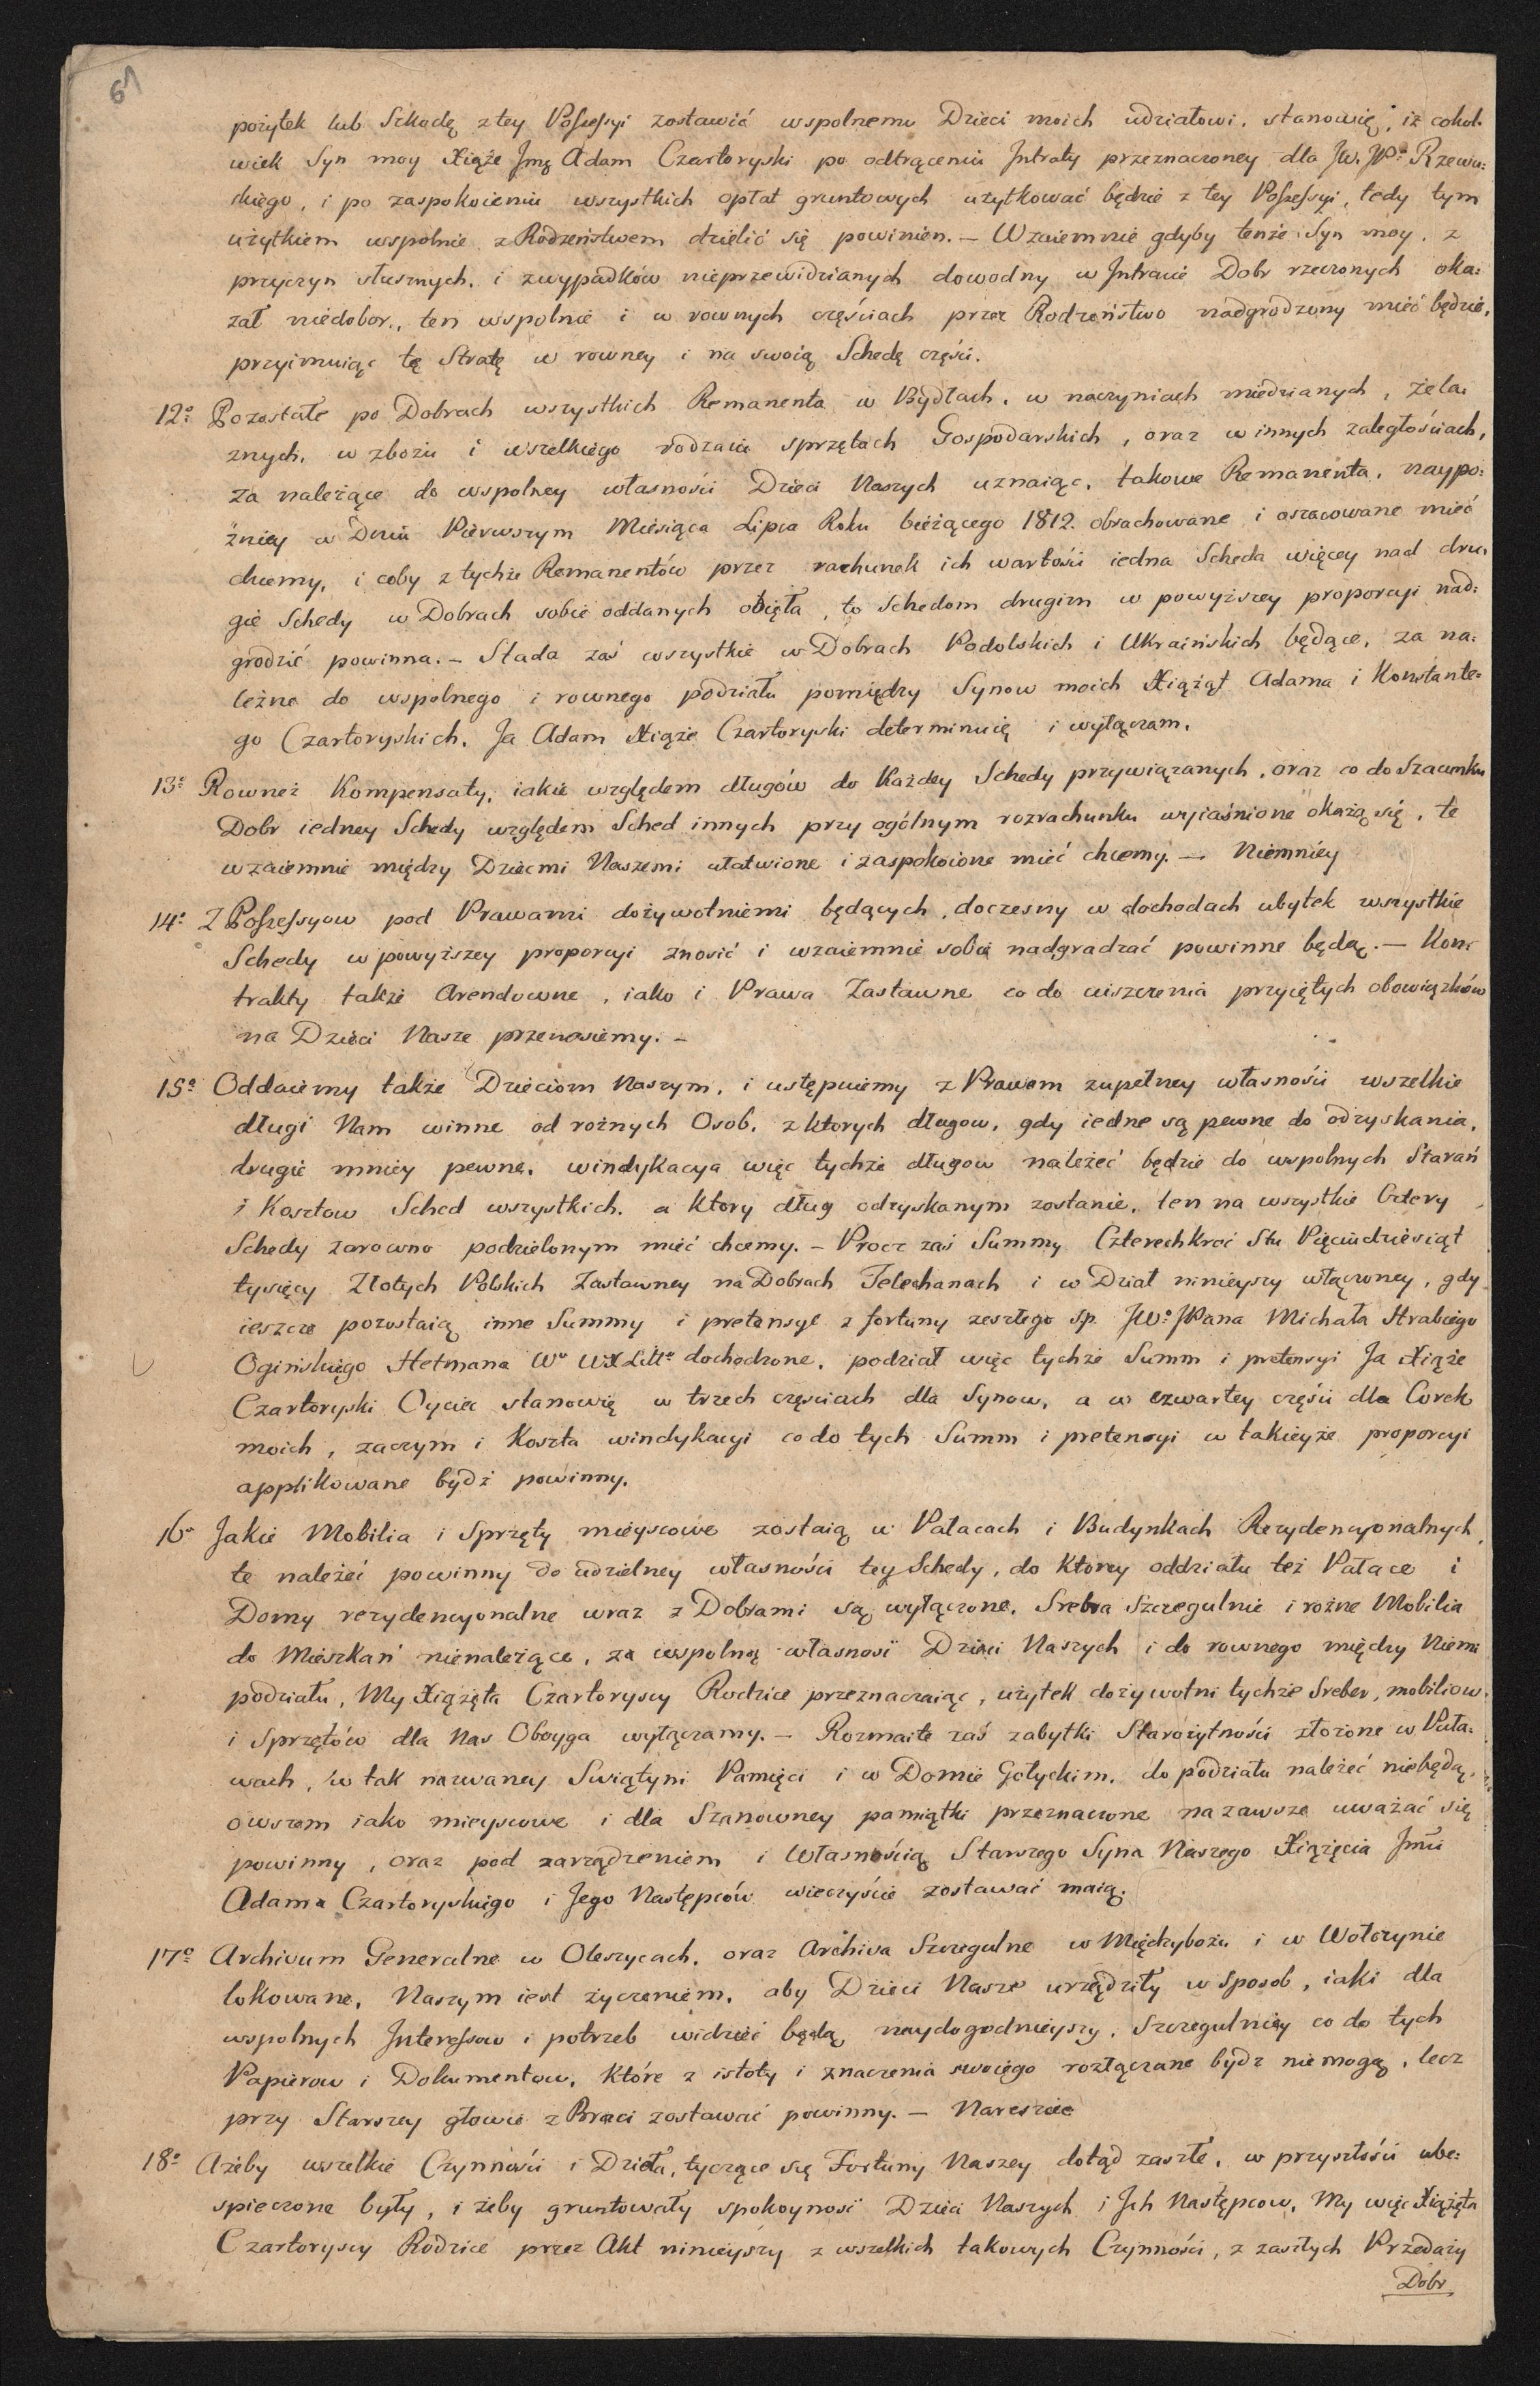 61
pożytek lub Szkodę z tey Possessyi zostawić wspolnemu Dzieci moich udziałowi, stanowię, iż cokol-
wiek Syn moy Xiąże Jmć Adam Czartoryski po odtrąceniu Intraty przeznaczoney dla JW. JPa Rzewu:
skiego, i po zaspokoieniu wszystkich opłat gruntowych użytkować będzie z tey Possessyi, tedy tym
użytkiem wspolnie z Rodzeństwem dzielić się powinien. — Wzaiemnie gdyby tenże Syn moy, z
przyczyn słusznych, i z wypadków nieprzewidzianych dowodny w Intracie Dobr rzeczonych oka:
zał niedobor, ten wspolnie i w rownych częściach przez Rodzeństwo nadgrodzony mieć będzie,
przyimuiąc tę Stratę w rowney i na swoią Schedę części.
12o Pozostałe po Dobrach wszystkich Remanenta w Bydłach, w naczyniach miedzianych, żela:
znych, w zbożu i wszelkiego rodzaiu sprzętach Gospodarskich, oraz w innych zaległościach,
za należące do wspolney własności Dzieci Naszych uznaiąc, takowe Remanenta, naypo:
źniey w Dniu Pierwszym Miesiąca Lipca Roku bieżącego 1812. obrachowane i oszacowane mieć
chcemy, i coby z tychże Remanentów przez rachunek ich wartości iedna Scheda więcey nad dru:
gie Schedy w Dobrach sobie oddanych obięła, to Schedom drugim w powyższey proporcyi nad:
grodzić powinna. — Stada zaś wszystkie w Dobrach Podolskich i Ukraińskich będące, za na:
leżne do wspolnego i rownego podziału pomiędzy Synow moich Xiążąt Adama i Konstante:
go Czartoryskich, Ja Adam Xiąże Czartoryski determinuię i wyłączam.
13o Rownież Kompensaty, iakie względem długów do Każdey Schedy przywiązanych, oraz co do Szacunku
Dobr iedney Schedy względem Sched innych przy ogólnym rozrachunku wyiaśnione okażą się, te
wzaiemnie między Dziećmi Naszemi ułatwione i zaspokoione mieć chcemy. — Niemniey
14o Z Possessyow pod Prawami dożywotniemi będących, doczesny w dochodach ubytek wszystkie
Schedy w powyższey proporcyi znosić i wzaiemnie sobie nadgradzać powinne będą. — Kon:
trakty także Arendowne, iako i Prawa Zastawne co do uiszczenia przyiętych obowiązków
na Dzieci Nasze przenosiemy. —
15o Oddaiemy także Dzieciom Naszym, i ustępuiemy z Prawem zupełney własności wszelkie
długi Nam winne od rożnych Osob, z ktorych długow, gdy iedne są pewne do odzyskania,
drugie mniey pewne, windykacya więc tychże długow należeć będzie do wspolnych Starań
i Kosztow Sched wszystkich, a ktory dług odzyskanym zostanie, ten na wszystkie Cztery
Schedy zarowno podzielonym mieć chcemy. — Procz zaś Summy Czterechkroć Stu Pięciudziesiąt
tysięcy Złotych Polskich Zastawney na Dobrach Telechanach i w Dział ninieyszy włączoney, gdy
ieszcze pozostaią inne Summy i pretensye z fortuny zeszłego sp. JWo JPana Michała Hrabiego
Ogińskiego Hetmana Wo WXLitto dochodzone, podział więc tychże Summ i pretensyi Ja Xiąże
Czartoryski Oyciec stanowię w trzech częściach dla Synow, a w czwartey części dla Corek
moich, zaczym i Koszta windykacyi co do tych Summ i pretensyi w takieyże proporcyi
applikowane bydź powinny.
16o Jakie Mobilia i Sprzęty mieyscowe zostaią w Pałacach i Budynkach Rezydencyonalnych,
te należeć powinny do udzielney własności tey Schedy, do Ktorey oddziału też Pałace i
Domy rezydencyonalne wraz z Dobrami są wyłączone. Srebra Szczegulnie i rożne Mobilia
do Mieszkań nienależące, za wspolną własność Dzieci Naszych i do rownego między Niemi
podziału, My Xiążęta Czartoryscy Rodzice przeznaczaiąc, użytek dożywotni tychże Sreber, mobiliow,
i Sprzętów dla Nas Oboyga wyłączamy. — Rozmaite zaś zabytki Starożytności złożone w Puła:
wach, w tak nazwaney Swiątyni Pamięci i w Domie Gotyckim, do podziału należeć niebędą,
owszem iako mieyscowe i dla Szanowney pamiątki przeznaczone na zawsze uważać się
powinny, oraz pod zarządzeniem i Własnością Starszego Syna Naszego Xiążęcia Jmci
Adama Czartoryskiego i Jego Następców wieczyście zostawać maią.
17o Archivum Generalne w Oleszycach, oraz Archiva Szczegulne w Międzybożu i w Wołczynie
lokowane, Naszym iest życzeniem, aby Dzieci Nasze urządziły w Sposob, iaki dla
wspolnych Interessow i potrzeb widzieć będą naydogodnieyszy, Szczegulniey co do tych
Papierow i Dokumentow, Które z istoty i znaczenia swoiego rozłączane bydz niemogą, lecz
przy Starszey głowie z Braci zostawać powinny. — Nareszcie
18o Ażeby wszelkie Czynności i Dzieła, tyczące się Fortuny Naszey dotąd zaszłe, w przyszłości ube:
spieczone były, i żeby gruntowały spokoyność Dzieci Naszych i Ich Następcow, My więc Xiążęta
Czartoryscy Rodzice przez Akt ninieyszy z wszelkich takowych Czynności, z zaszłych Przedaży
Dobr